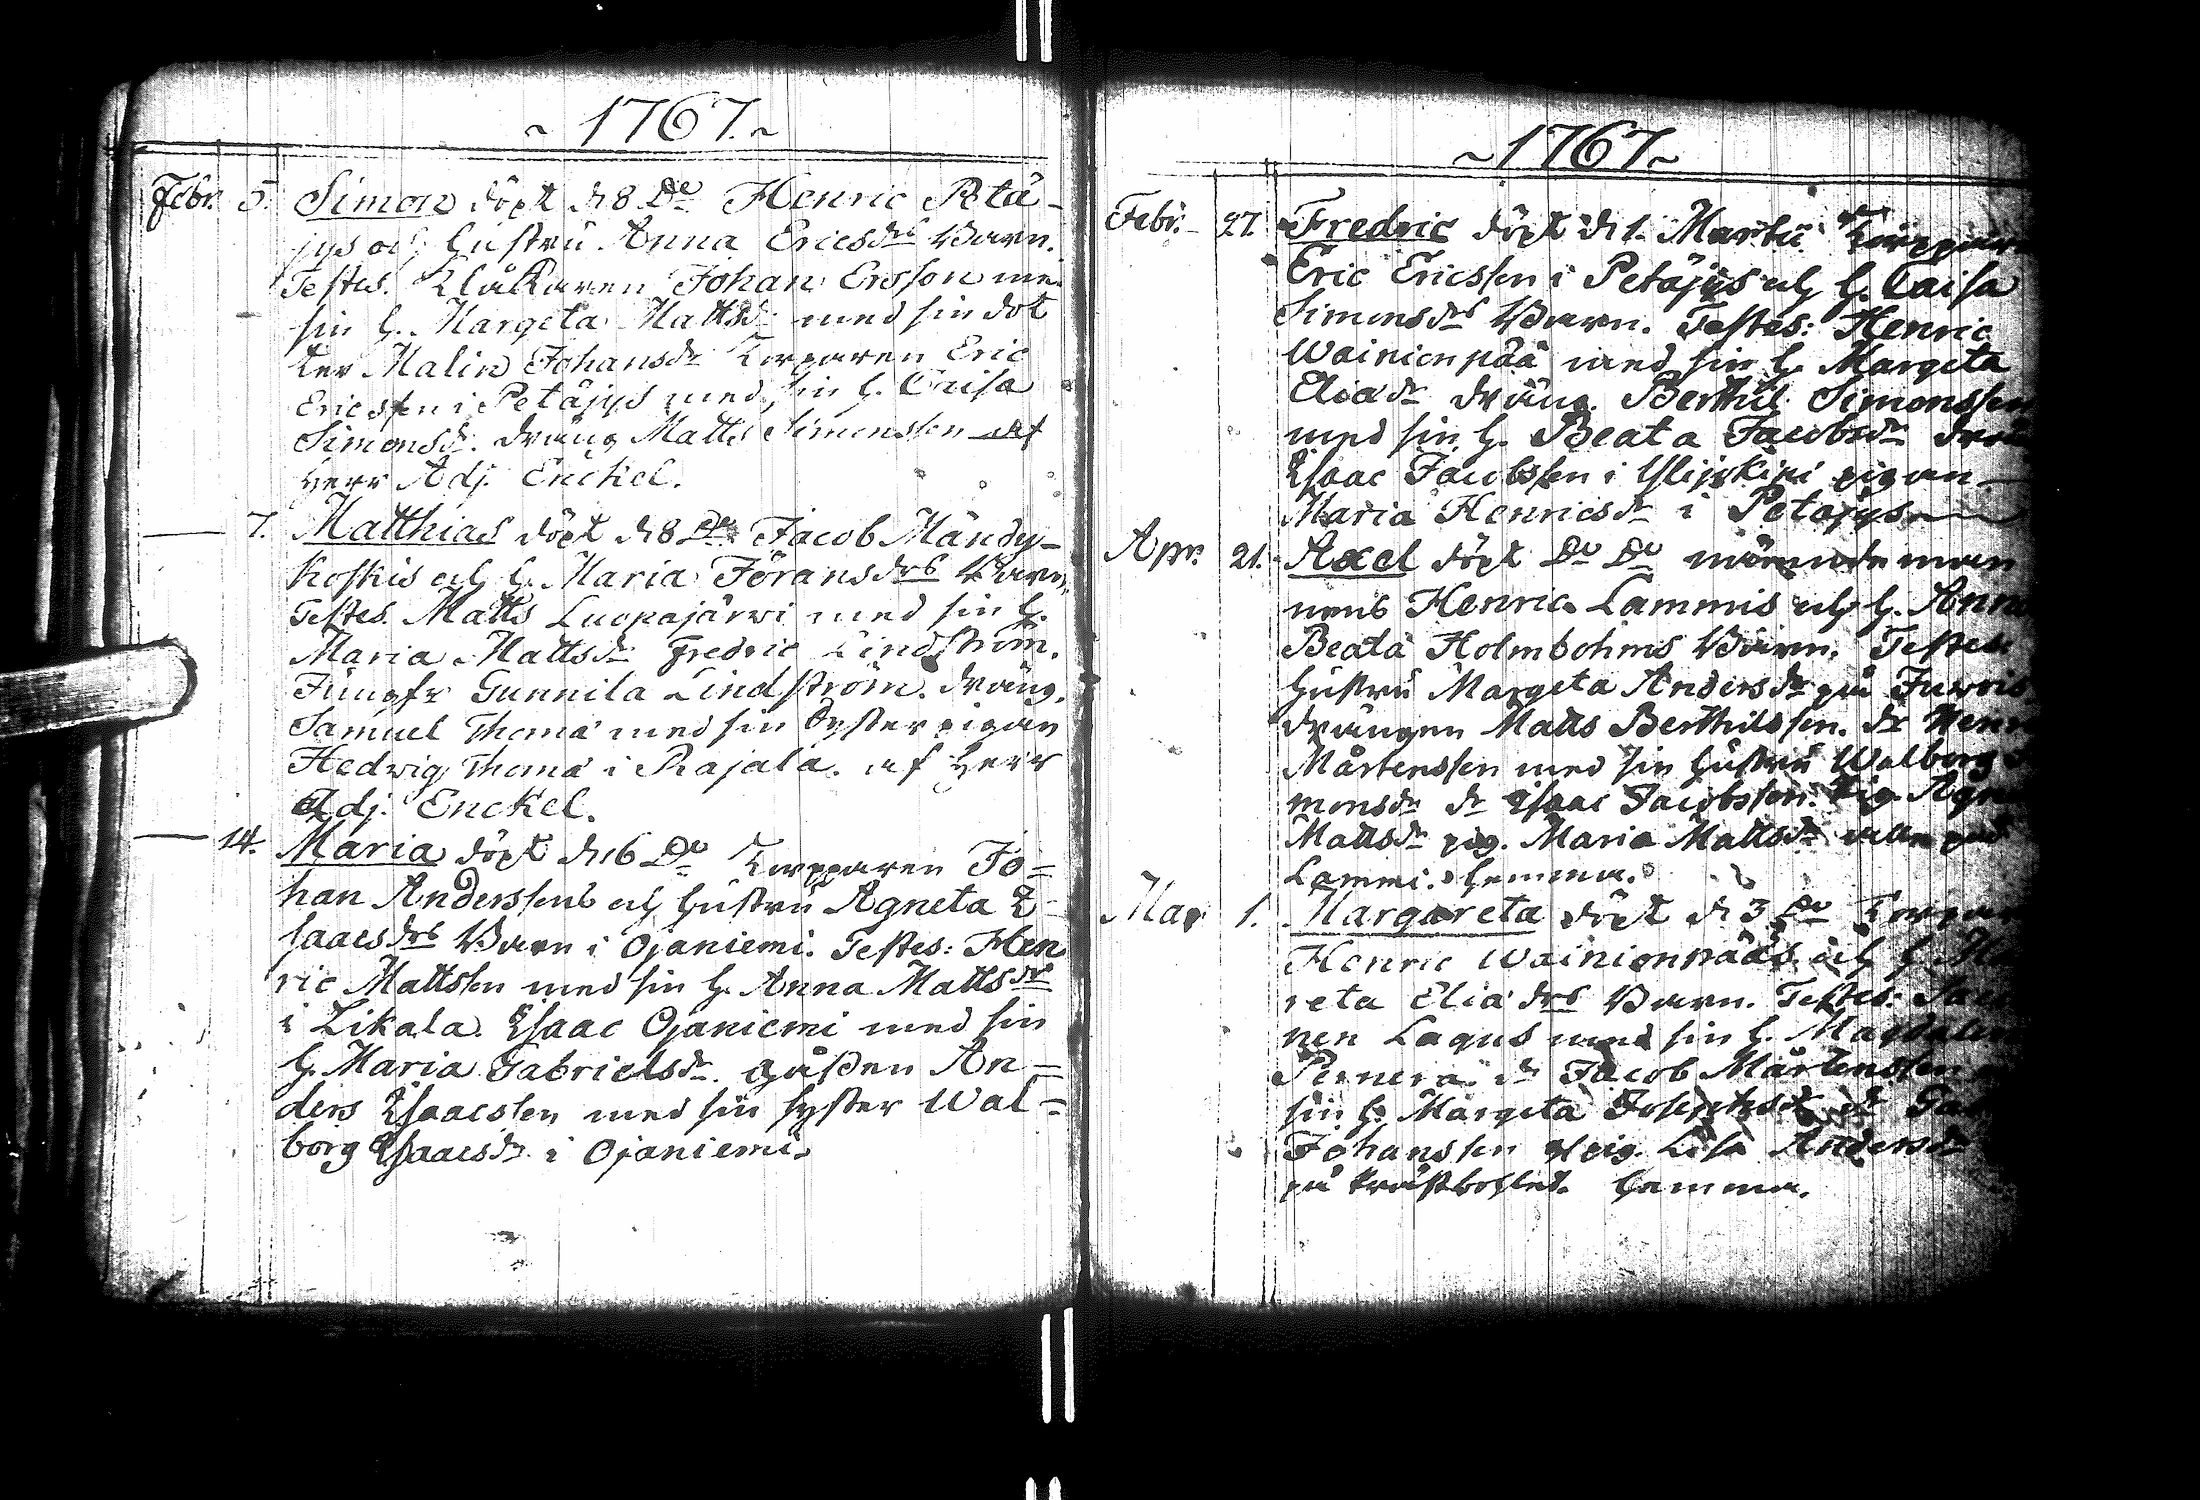 ~ 1767. ~
Febr. 5. Simon döpt d 8 De Henric Petä-
jys och hustru Anna Ericsdrs Barn.
Testes. Klåkaren Johan Ersson me
sin h. Margeta Mattsdr med sin dot
ter Malin Johansdr Torparen Eric
Ericssen i Petäjys med sin h. Caisa
Simonsdr. dräng Matts Simonssen af
Herr Adj. Enckel.
7. Matthias döpt d 8 De Jacob Mändy-
koskis och h. Maria Jöransdrs Barn.
Testes. Matts Luopajärwi med sin h.
Maria Mattsdr Fredric Lindström.
Jungfr Gunnila Lindström. dräng.
Samuel Thoma med sin Syster pigan
Hedwig Thoma i Rajala. af Herr
Adj. Enckel.
14. Maria döpt d 16 De Torpparen Jo=
han Anderssens och hustru Agneta I-
saacsdrs Barn i Ojaniemi. Testes: Hen
ric Mattssen med sin h. Anna Mattsdr
i Likala. Isaac Ojaniemi med sin
h. Maria Gabrielsdr. gåssen An=
ders Isaacssen med sin syster Wal=
borg Isaacsdr i Ojaniemi.
~ 1767 ~
Febr. 27. Fredric döpt d 1. Martii Torpparen
Eric Ericssen i Petäjys och h. Caisa
Simonsdrs Barn. Testes: Henric
Wainionpää med sin h. Margeta
Eliadr dräng. Berthil Simonssen
med sin h. Beata Jacobsdr
Isaac Jacobssen i Ylijskipi pigan
Maria Henricsdr i Petäjys
Apr. 21. Axel döpt De De
Henric Lammis och h. Anna
Beata Holmbohms Barn. Testes:
hustru Margeta Andersdr på
drängen Matts Berthilssen. dr
Mårtenssen med sin hustru Walborg
monsdr dr Isaac Jacobssen. Pig.
Mattsdr pig. Maria Mattsdr alla på
Lammi. hemma.
Mar 1. Margareta döpt d 3 De
Henric Wainionpääs och h.
reta Eliadrs Barn. Testes:
nen Lagus med sin h.
dr Jacob Mårtenssen
sin h. Margeta Josephsdr dr
Johanssen pig. Lisa Andersdr
på Prästbohlet. hemma.